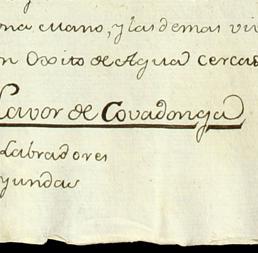 na mano, y las demas vi
n Oxito de Agua cerca
Lavor de Covadonga
Labradores
yundas